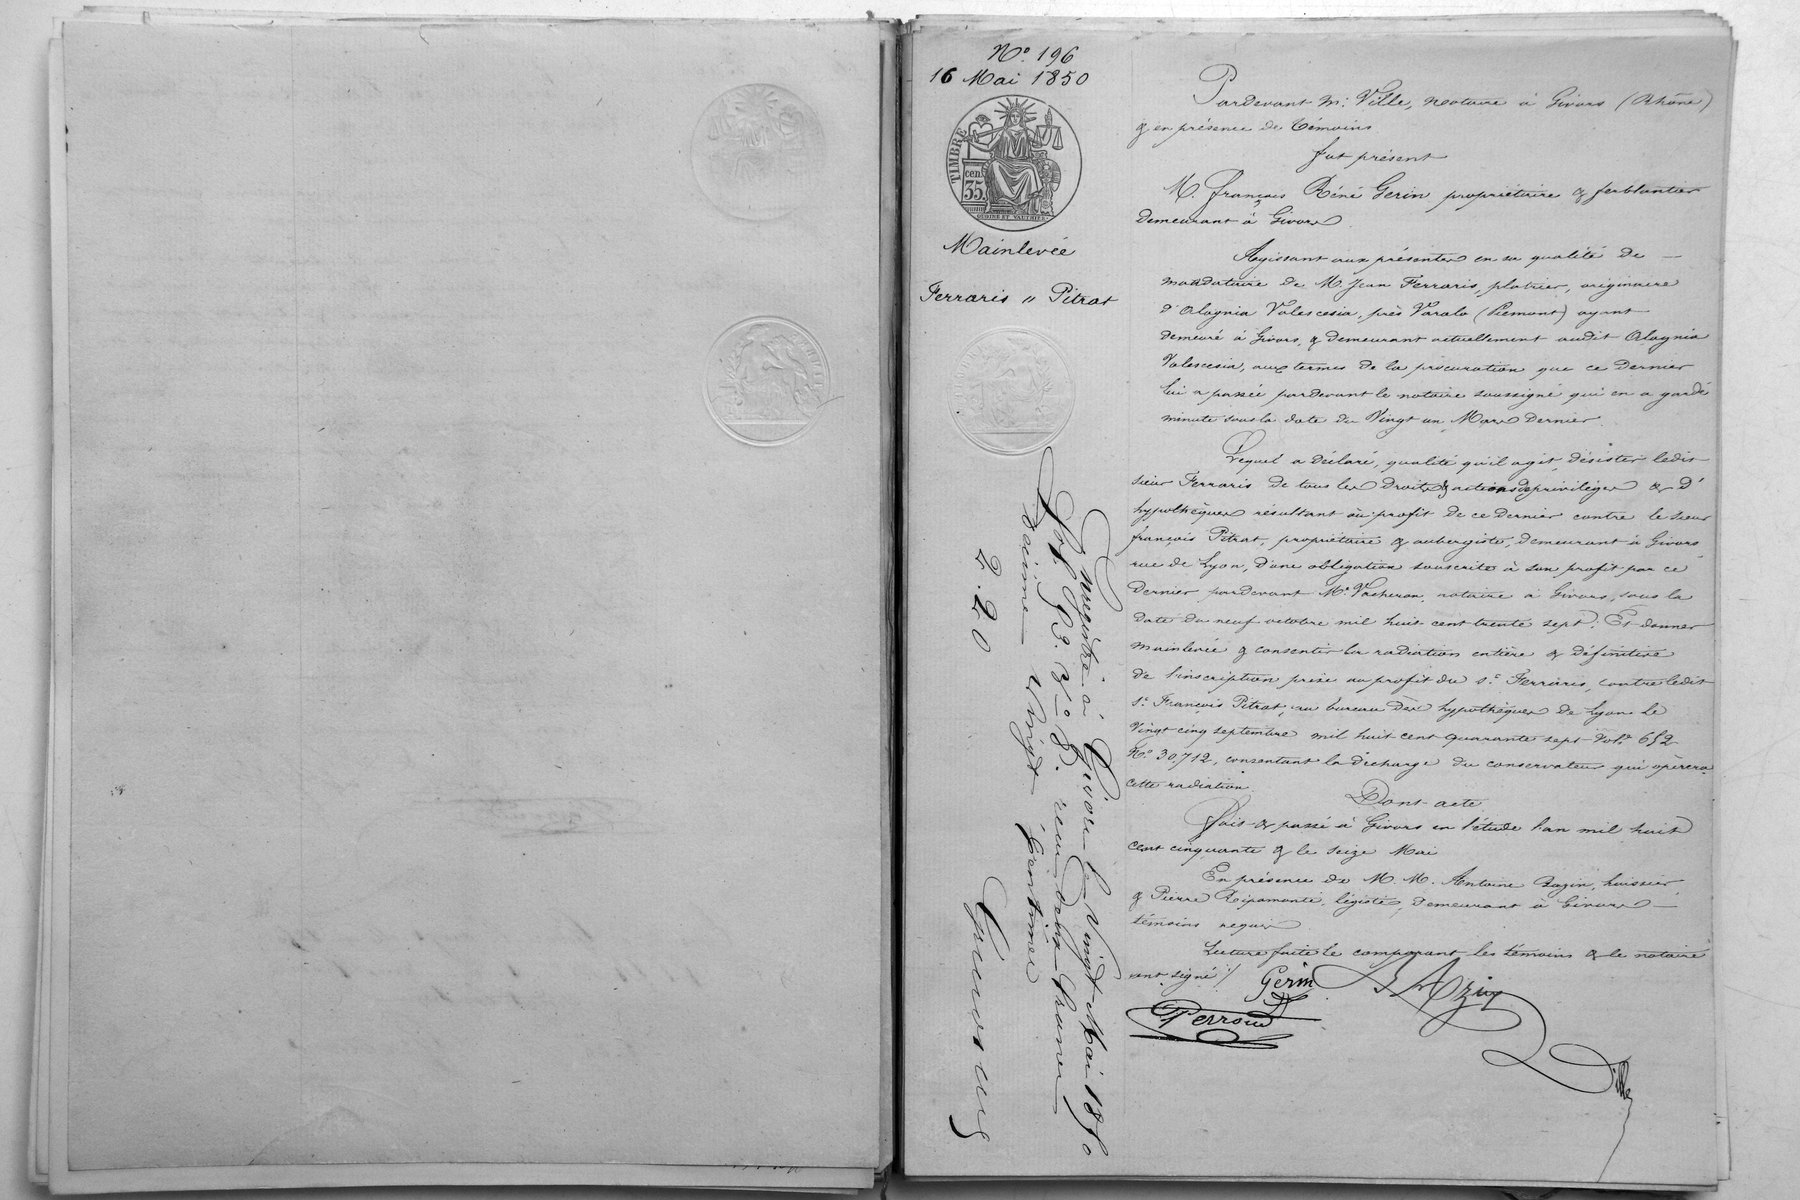 N.° 196
16 Mai 1850
TIMBRE
cen.
35.
Mainlevée
Ferraris " Pitrat
Pardevant M.e Ville, Notaire à Givors (Rhône)
& en présence de témoins
fut présent
M. François Réné Gerin propriétaire & ferblantier
demeurant à Givors
Agissant aux présentes en sa qualité de
mandataire de M. Jean Ferraris, platrier, originaire
d'Alagnia Valescesia, près Varalo (Piemont) ayant
demeuré à Givors, & demeurant actuellement audit Alagnia
Valescesia, aux termes de la procuration que ce dernier
lui a passée pardevant le notaire soussigné qui en a gardé
minute sous la date du Vingt un Mars dernier.
Lequel a déclaré, qualité qu'il agit, désister ledit
sieur Ferraris de tous les droits & actions de privilèges & d'
hypothèques résultant au profit de ce dernier contre le sieur
françois Pitrat, propriétaire & aubergiste, demeurant à Givors
rue de Lyon, d'une obligation souscrite à son profit par ce
dernier pardevant M.e Vacheron, notaire à Givors, sous la
date du neuf octobre mil huit cent trente sept. Et donner
mainlevée & consentir la radiation entière & définitive
de l'inscription prise au profit du s.r Ferraris, contre ledit
s.r François Pitrat, au bureau des hypothèques de Lyon le
Vingt cinq septembre mil huit cent quarante sept Vol. 652
N.° 30,712, consentant la décharge du conservateur qui opèrera
cette radiation.
Dont acte
Fait & passé à Givors en l'étude l'an mil huit
cent cinquante & le seize Mai
En présence de M. M. Antoine Bazin, huissier
& Pierre Ripamonte, légiste, demeurant à Givors
témoins requis
Lecture faite le comparant les témoins & le notaire
ont signé /
Gerin
Bazin
Perroud
Ville
Enregistré à Givors le Vingt Mai 1850
fol. 93. R.o c. 8. reçu deux francs
décime Vingt Centimes
2.20